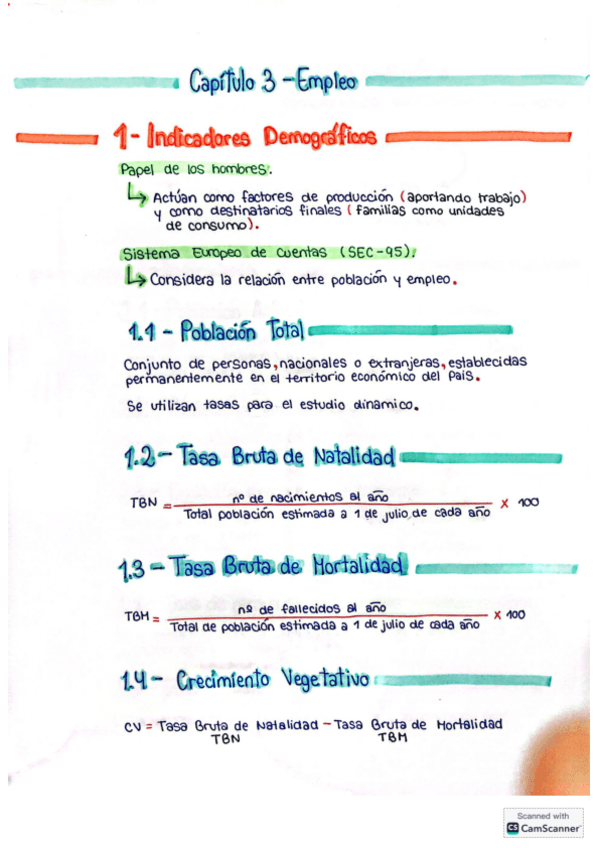 Capítulo 3 - Empleo
1- Indicadores Demográficos
Papel de los hombres:
↳ Actúan como factores de producción (aportando trabajo)
y como destinatarios finales ( familias como unidades
de consumo).
Sistema Europeo de Cuentas (SEC-95):
↳ Considera la relación entre población y empleo.
1.1 - Población Total
Conjunto de personas, nacionales o extranjeras, establecidas
permanentemente en el territorio económico del País.
Se utilizan tasas para el estudio dinamico.
1.2 - Tasa Bruta de Natalidad
TBN = nº de nacimientos al año / Total población estimada a 1 de julio de cada año x 100
1.3 - Tasa Bruta de Mortalidad
TBM = nº de fallecidos al año / Total de población estimada a 1 de julio de cada año x 100
1.4 - Crecimiento Vegetativo
CV = Tasa Bruta de Natalidad - Tasa Bruta de Mortalidad
TBN TBM
Scanned with
CS CamScanner